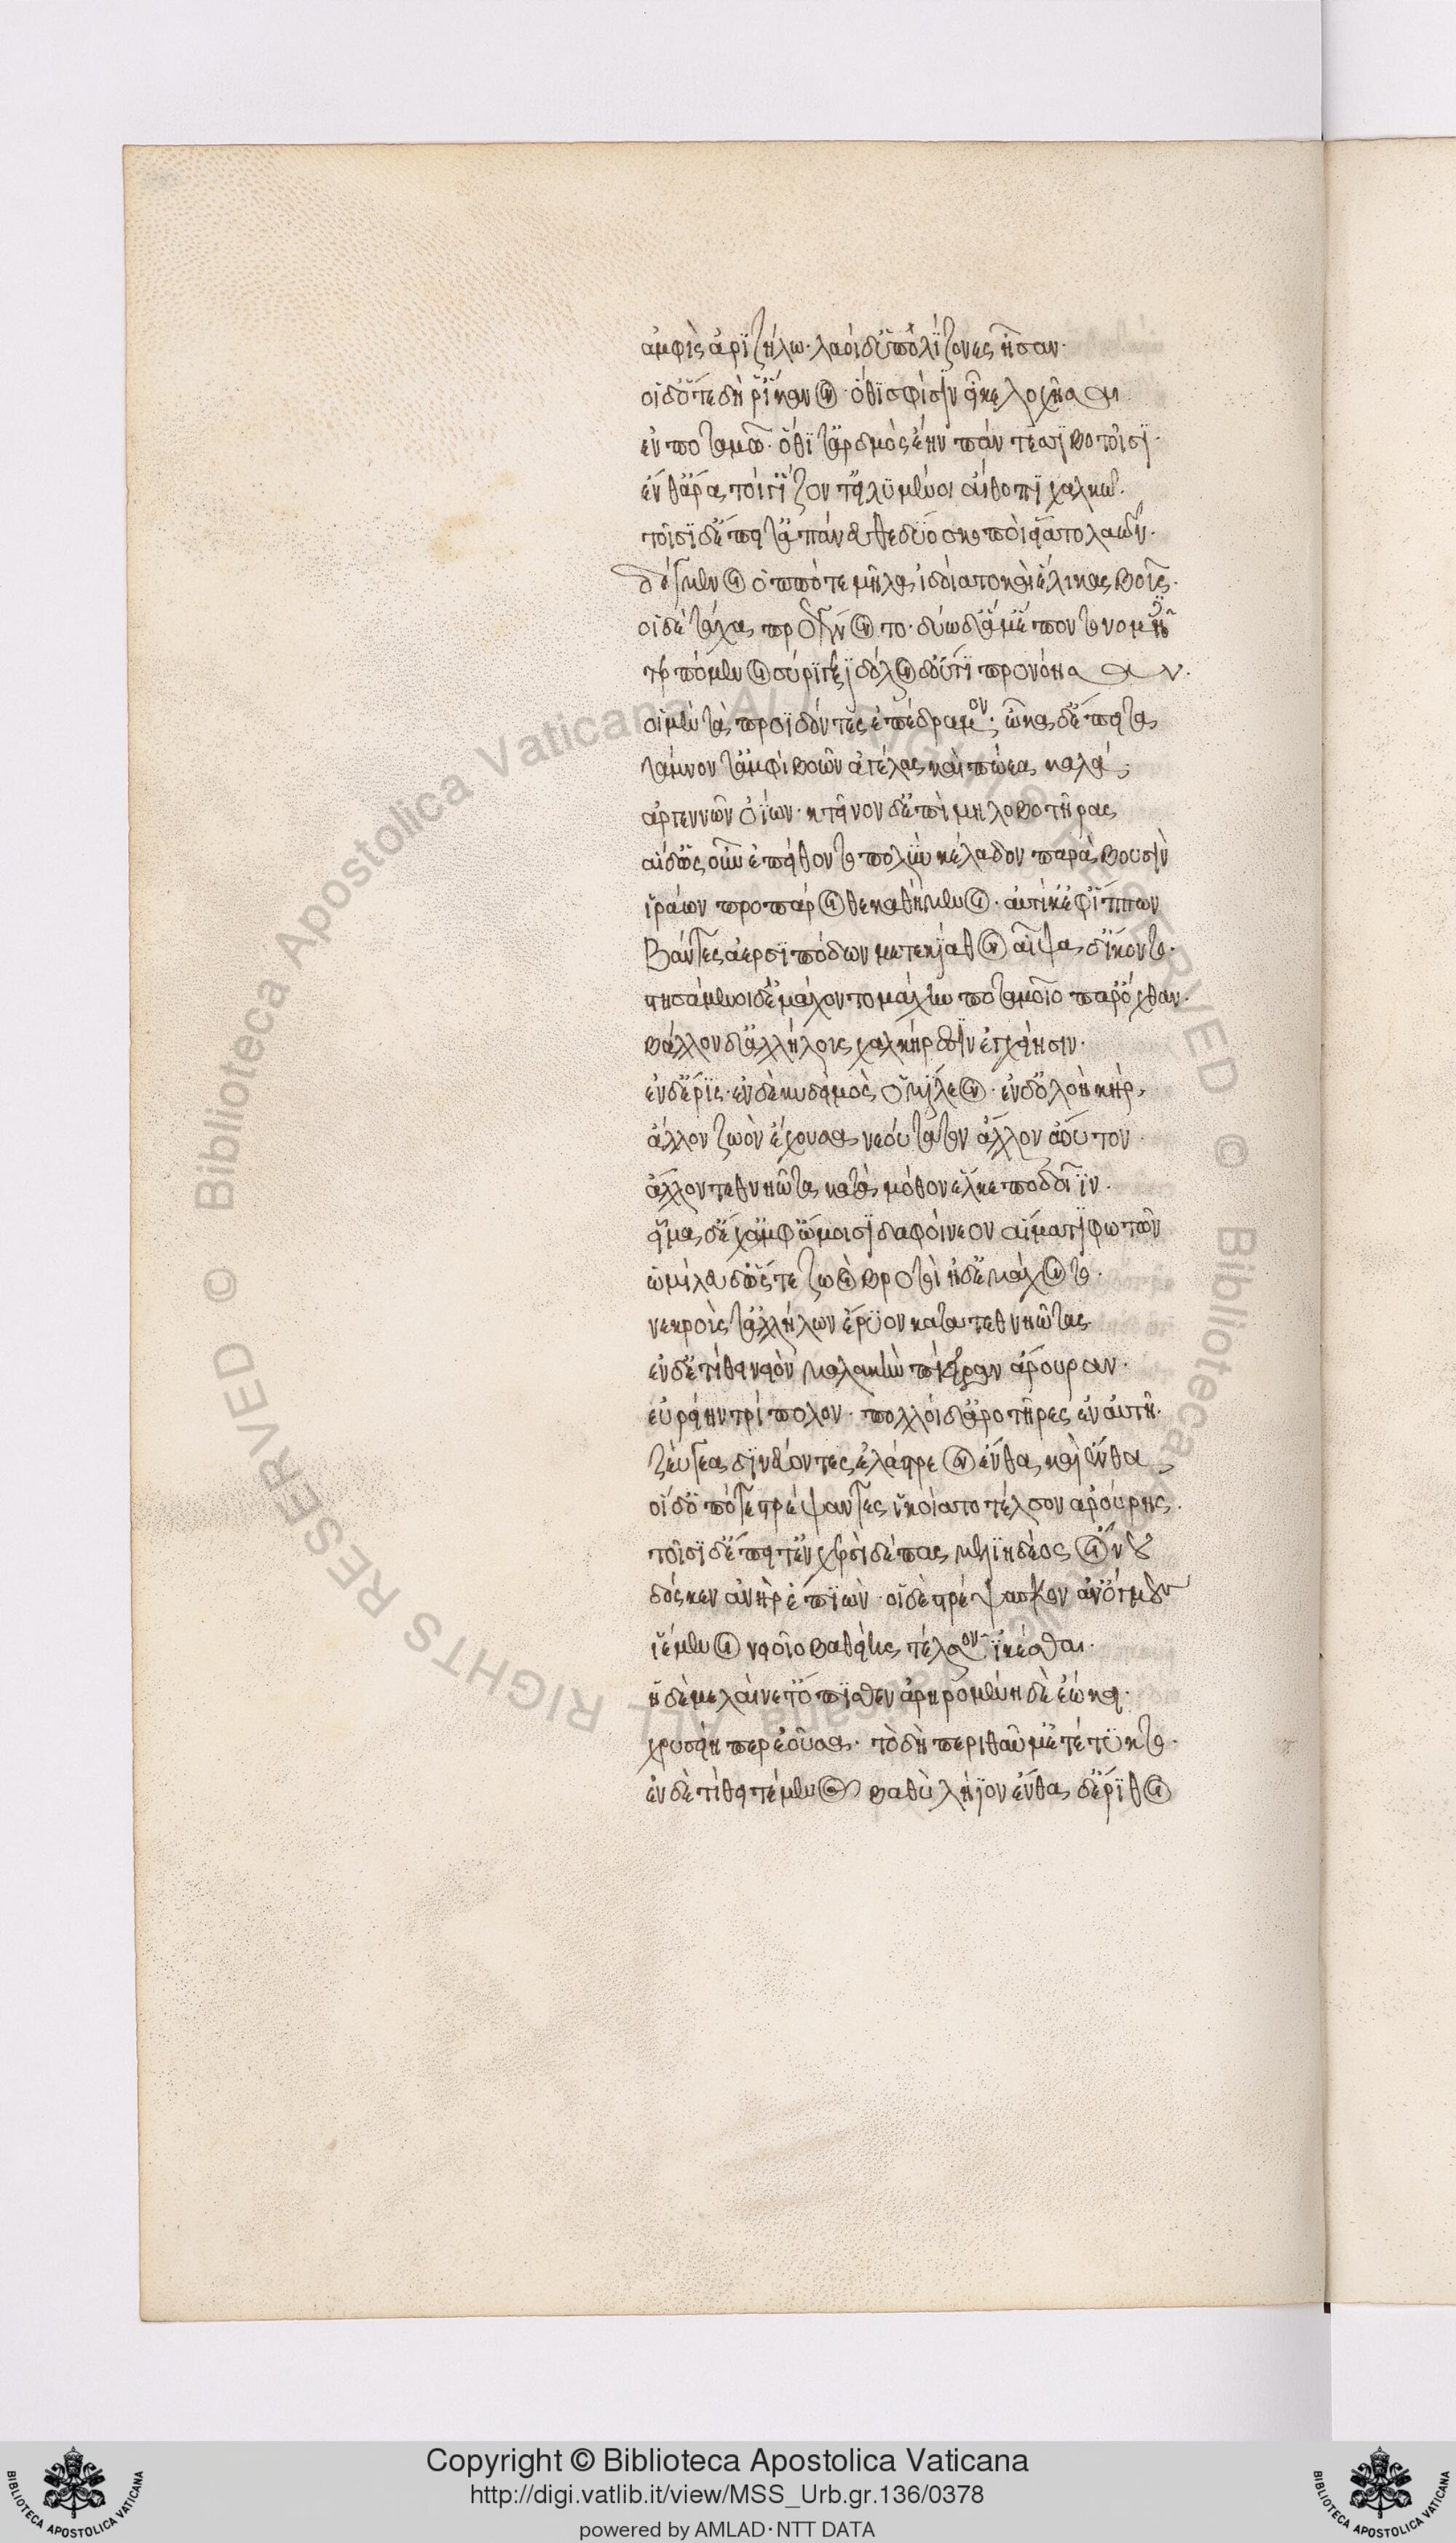 ἀμφὶς ἀριζήλω· λαοὶ δ' ὑπολίζονες ἦσαν·
οἱ δ' ὅτε δὴ ῥ' ἵκανον ὅθι σφίσιν εἶκε λοχῆσαι
ἐν ποταμῶ· ὅθι τ' ἀρδμὸς ἔην πάντεσι βοτοῖσι·
ἔνθ' ἄρα τοί γ' ἵζοντ' εἰλυμένοι αἴθοπι χαλκῶ·
τοῖσι δ' ἔπειτ' ἀπάνευθε δύο σκοποὶ εἵατο λαῶν·
δέγμενοι ὁππότε μῆλα ἰδοίατο καὶ ἕλικας βοῦς·
οἱ δὲ τάχα προγένοντο· δύω δ' ἅμ' ἕποντο νομῆες
τερπόμενοι σύριγξι δόλον δ' οὔτι προνόησαν·
οἱ μὲν τὰ προϊδόντες ἐπέδραμον· ὦκα δ' ἔπειτα
τάμνοντ' ἀμφὶ βοῶν ἀγέλας καὶ πώεα καλά·
ἀργεννῶν ὀΐων· κτεῖνον δ' ἐπὶ μηλοβοτῆρας
οἱ δ' ὡς οὖν ἐπύθοντο πολὺν κέλαδον παρὰ βουσὶν
ἱράων προπάροιθε καθήμενοι· αὐτίκ' ἐφ' ἵππων
βάντες ἀερσιπόδων μετεκίαθον αἶψα δ' ἵκοντο·
στησάμενοι δ' ἐμάχοντο μάχην ποταμοῖο παρ' ὄχθας·
βάλλον δ' ἀλλήλους χαλκήρεσιν ἐγχείησιν·
ἐν δ' ἔρις· ἐν δὲ κυδοιμὸς ὁμίλεον· ἐν δ' ὀλοὴ κὴρ·
ἄλλον ζωὸν ἔχουσα νεούτατον ἄλλον ἄουτον·
ἄλλον τεθνηῶτα κατὰ μόθον ἕλκε ποδοῖϊν·
εἷμα δ' ἔχ' ἀμφ' ὤμοισι δαφοίνεον αἵματι φωτῶν
ὡμίλευν δ' ὥς τε ζωοὶ βροτοὶ ἠδ' ἐμάχοντο·
νεκρούς τ' ἀλλήλων ἔρυον κατατεθνηῶτας
ἐν δ' ἐτίθει νειὸν μαλακὴν πίειραν ἄρουραν·
εὐρεῖην τρίπολον· πολλοὶ δ' ἀροτῆρες ἐν αὐτῆ·
ζεύγεα δινεύοντες ἐλάστρεον ἔνθα καὶ ἔνθα
οἱ δ' ὁπότε στρέψαντες ἱκοίατο τέλσον ἀρούρης·
τοῖσι δ' ἔπειτ' ἐν χερσὶ δέπας μελιηδέος οἴνου
δόσκεν ἀνὴρ ἐπιὼν· οἱ δὲ στρέψασκον ἀν' ὄγμους
ἱέμενοι νειοῖο βαθείης τέλσον ἱκέσθαι·
ἡ δὲ μελαίνετ' ὄπισθεν ἀρηρομένη δὲ ἐώκει·
χρυσείη περ ἐοῦσα· τὸ δὴ περὶ θαῦμ' ἐτέτυκτο·
ἐν δὲ τίθει τέμενος βαθὺ λήϊον ἔνθα δ' ἔριθοι
Copyright © Biblioteca Apostolica Vaticana
http://digi.vatlib.it/view/MSS_Urb.gr.136/0378
powered by AMLAD·NTT DATA